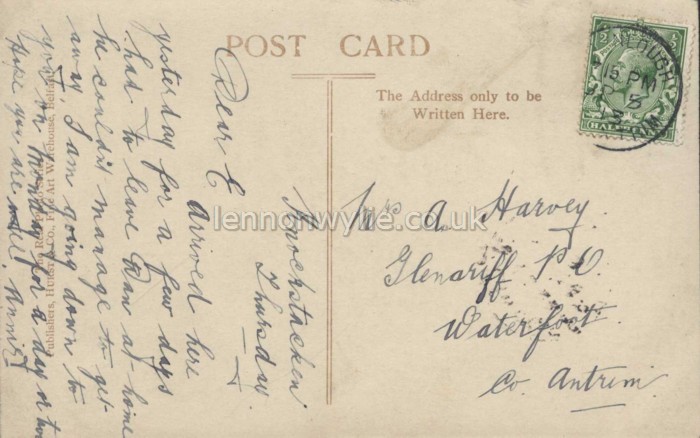 POST CARD
The Address only to be
Written Here.
HALFPENNY
PM
Mrs A. Harvey
Glenariff P.O
Waterfoot
Co. Antrim
Knockstacken
Thursday.
Dear E
Arrived here
yesterday for a few days
had to leave Dan at home
he couldn't manage to get
away, I am going down to
you on Monday for a day or two
Hope you are well. Annie
Publishers, Hurst & Co., Fine Art Warehouse, Belfast
lennonwylie.co.uk